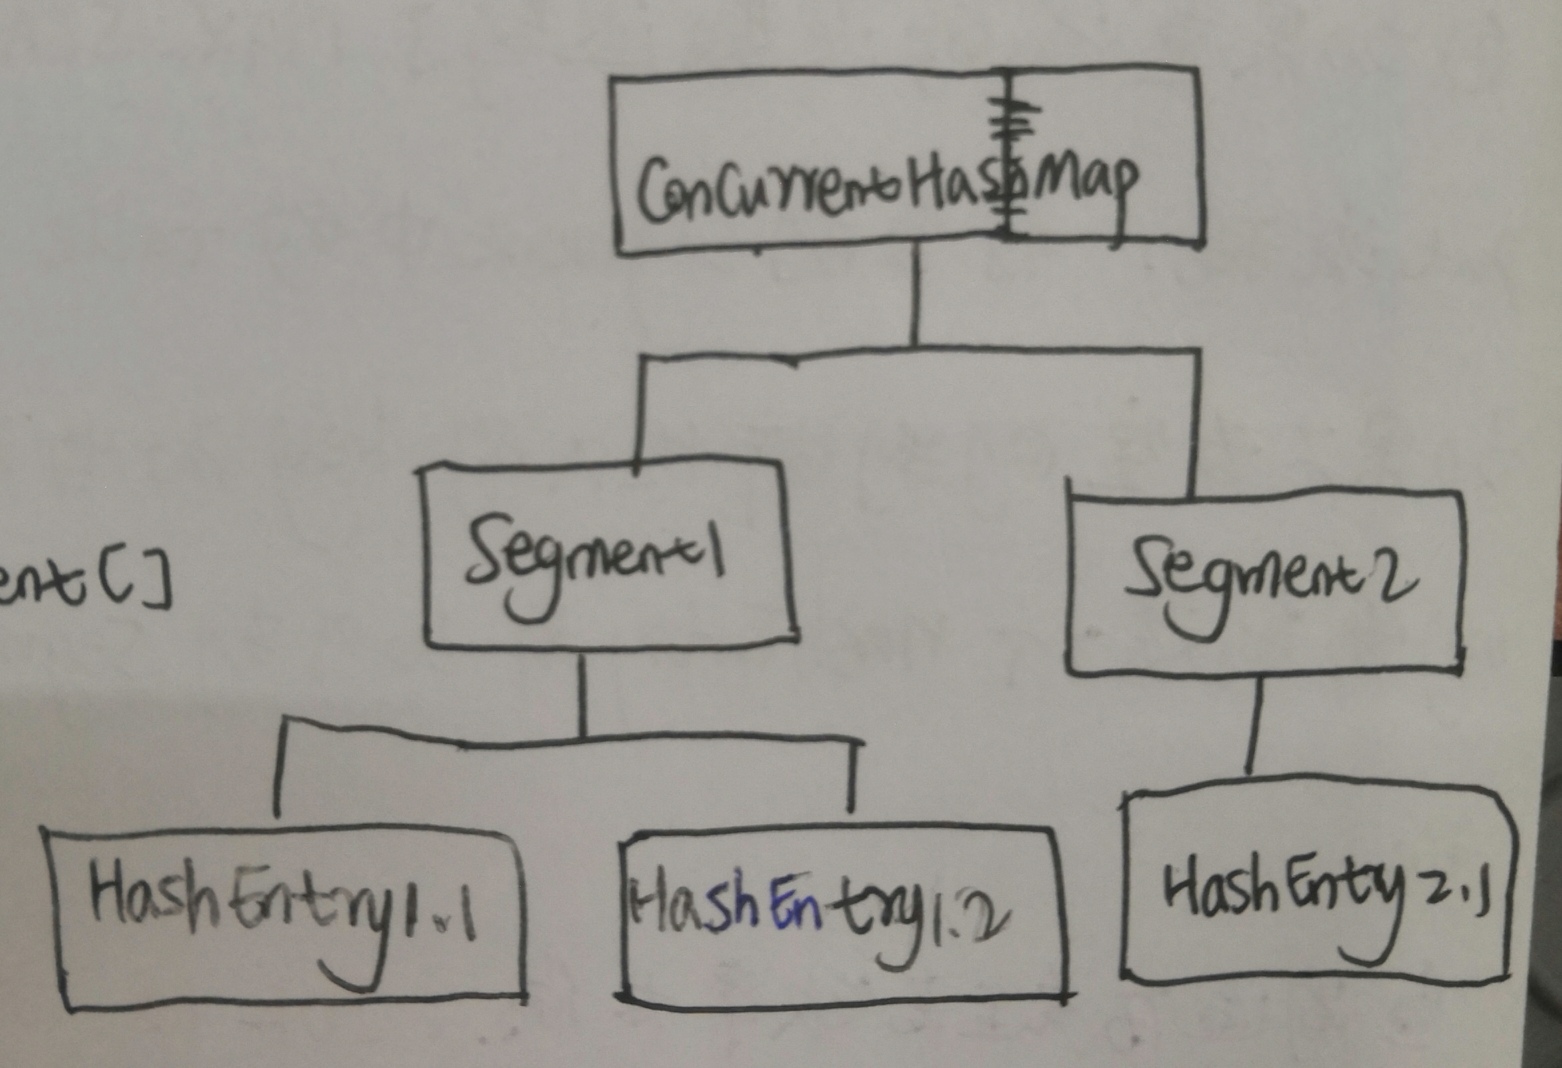 ConCurrentHashMap
Segment1
Segment2
ent[]
HashEntry1.1
HashEntry1.2
HashEntry2.1